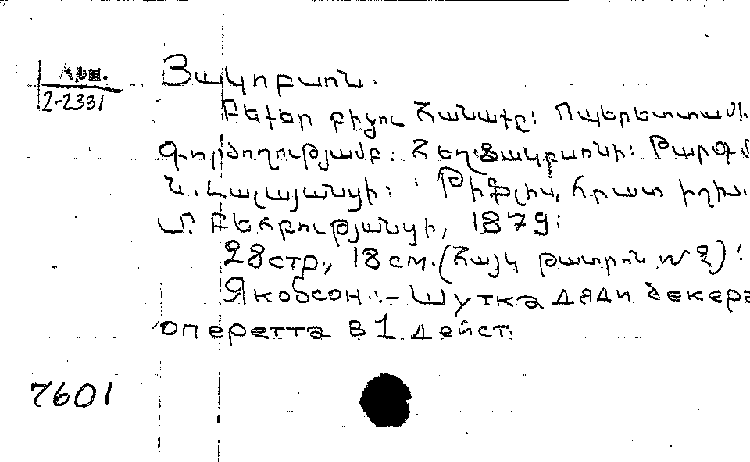 Արտ.
2-2331
Յակոբսոն.
Բեքեր բիձու հանաքը: Օպերետտա մի
գործողությամբ: Հեղ. Յակոբսոնի: Թարգմ
Ն. Նալայանսի: Թիֆլիս, հրատ
Մ. Բեհբությանսի, 1879:
28 стр., 18 см. (Հայկ թատրոն № 2):
Якобсон :- Шутка дяди Бекера
оперетта в 1 дейст:
7601